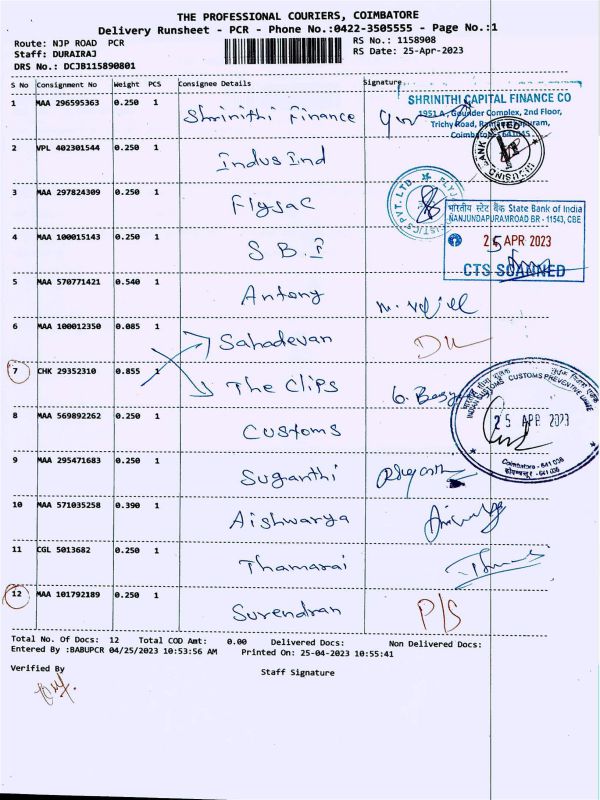 THE PROFESSIONAL COURIERS, COIMBATORE
Delivery Runsheet - PCR - Phone No.:0422-3505555 - Page No.:1
Route: NJP ROAD PCR
RS No.: 1158908
Staff: DURAIRAJ
RS Date: 25-Apr-2023
DRS No.: DCJB115890801
S No Consignment No Weight PCS Consignee Details Signature
1 MAA 296595363 0.250 1 Shrinithi Finance
SHRINITHI CAPITAL FINANCE CO
1951 A, Gounder Complex, 2nd Floor,
Trichy Road,
2 VPL 402301544 0.250 1 Indus Ind
3 MAA 297824309 0.250 1 Flysac
भारतीय स्टेट बैंक State Bank of India
NANJUNDAPURAMROAD BR - 11543, CBE
25 APR 2023
CTS SCANNED
4 MAA 100015143 0.250 1 S B.I
5 MAA 570771421 0.540 1 Antony
6 MAA 100012350 0.085 1 Sahadevan
7 CHK 29352310 0.855 1 The Clips
INDIAN CUSTOMS CUSTOMS PREVENTIVE
25 APR 2023
Coimbatore - 641 038
8 MAA 569892262 0.250 1 Customs
9 MAA 295471683 0.250 1 Suganthi
10 MAA 571035258 0.390 1 Aishwarya
11 CGL 5013682 0.250 1 Thamarai
12 MAA 101792189 0.250 1 Surendran P/S
Total No. Of Docs: 12 Total COD Amt: 0.00 Delivered Docs: Non Delivered Docs:
Entered By :BABUPCR 04/25/2023 10:53:56 AM Printed On: 25-04-2023 10:55:41
Verified By
Staff Signature